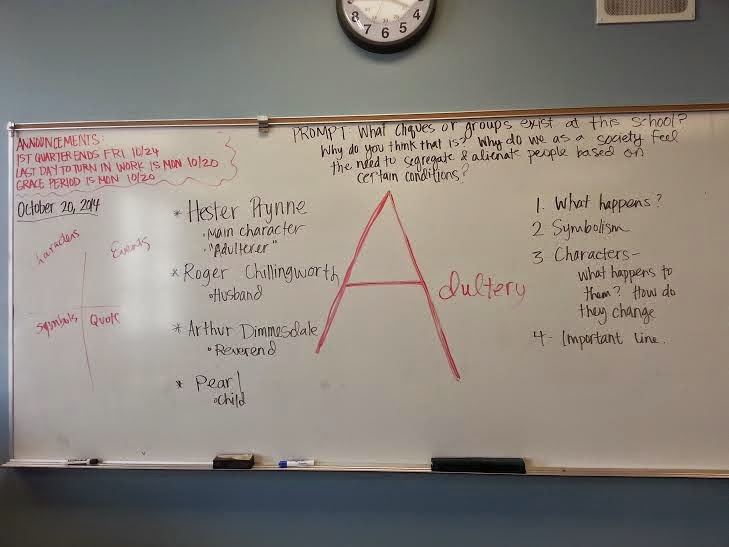 8 7 6 5 4
ANNOUNCEMENTS:
1ST QUARTER ENDS FRI 10/24
LAST DAY TO TURN IN WORK IS MON 10/20
GRACE PERIOD IS MON 10/20
PROMPT: What cliques or groups exist at this school?
Why do you think that is? Why do we as a society feel
the need to segregate & alienate people based on
certain conditions?
October 20, 2014
Characters
Events
Symbols
Quote
* Hester Prynne
• Main character
• "Adulterer"
* Roger Chillingworth
• Husband
* Arthur Dimmesdale
• Reverend
* Pearl
• Child
Adultery
1. What happens?
2 Symbolism
3 Characters –
What happens to
them? How do
they change
4 - Important line.